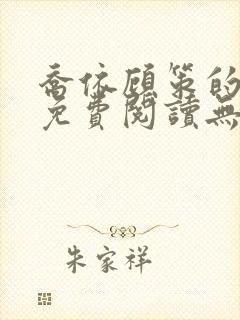 喬依顧策的
免費閱讀無
朱家祥